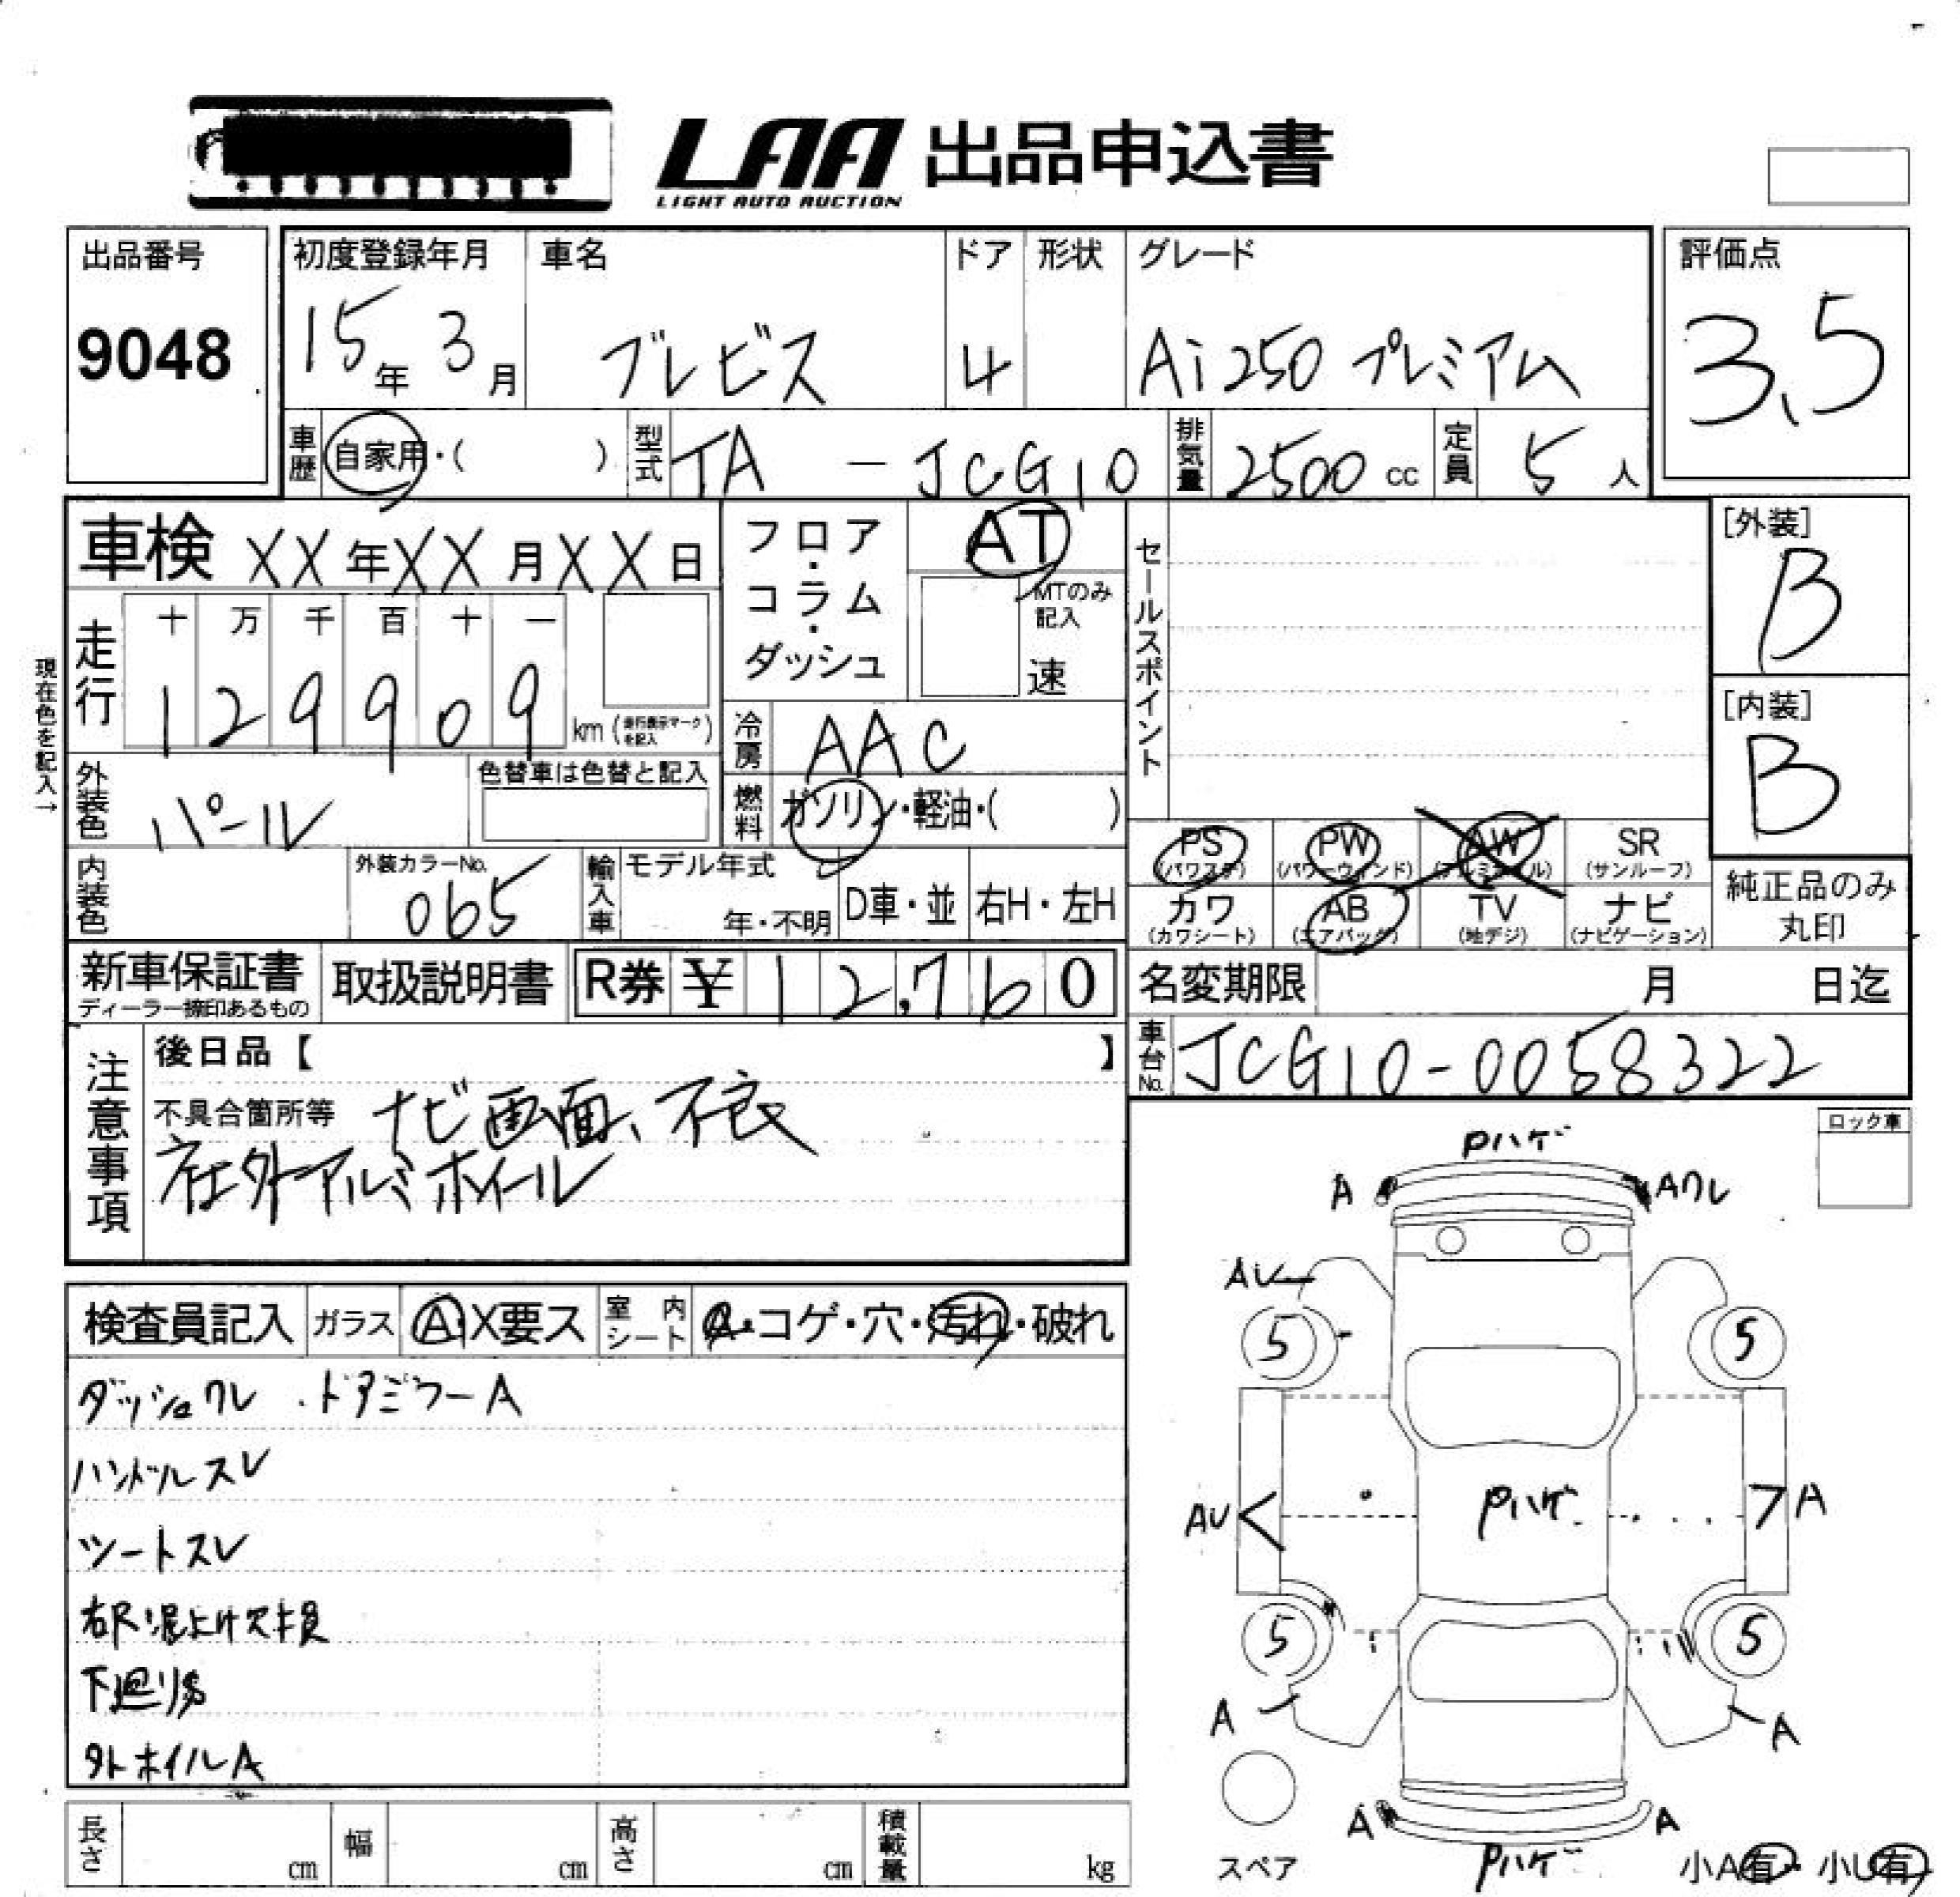 LAA 出品申込書
LIGHT AUTO AUCTION
出品番号 初度登録年月 車名 ドア 形状 グレード 評価点
9048 15年 3月 ブレビス 4 Ai250 プレミアム 3.5
車歴 自家用・( ) 型式 TA - JCG10 排気量 2500 cc 定員 5 人
車検 XX年XX月XX日 フロア・コラム・ダッシュ AT セールスポイント [外装]
B
MTのみ記入
速
現在色を記入→
走行 十 万 千 百 十 一
1 2 9 9 0 9 km (走行表示マークを記入)
[内装]
B
冷房 AAC
外装色 パール 色替車は色替と記入
燃料 ガソリン・軽油・( )
PS PW AW SR
(パワステ) (パワーウィンド) (アルミホイル) (サンルーフ)
内装色 外装カラーNo. 065 輸入車 モデル年式 年・不明 D車・並 右H・左H
カワ AB TV ナビ
(カワシート) (エアバッグ) (地デジ) (ナビゲーション)
純正品のみ
丸印
新車保証書 取扱説明書 R券 ¥ 12,760 名変期限 月 日迄
ディーラー捺印あるもの
車台No. JCG10-0058322
注意事項 後日品【 】
不具合箇所等 ナビ画面、不良
社外アルミホイール
ロック車
Pハゲ
A Aワレ
AU
5 5
AU Pハゲ A
5 5
A A
A A
Pハゲ
スペア 小A有・小U有
検査員記入 ガラス A・X要ス 室内シート A・コゲ・穴・汚れ・破れ
ダッシュワレ ・ドアミラーA
ハンドルスレ
シートスレ
右R泥よけ欠損
下廻り傷
外ホイルA
長さ cm 幅 cm 高さ cm 積載量 kg